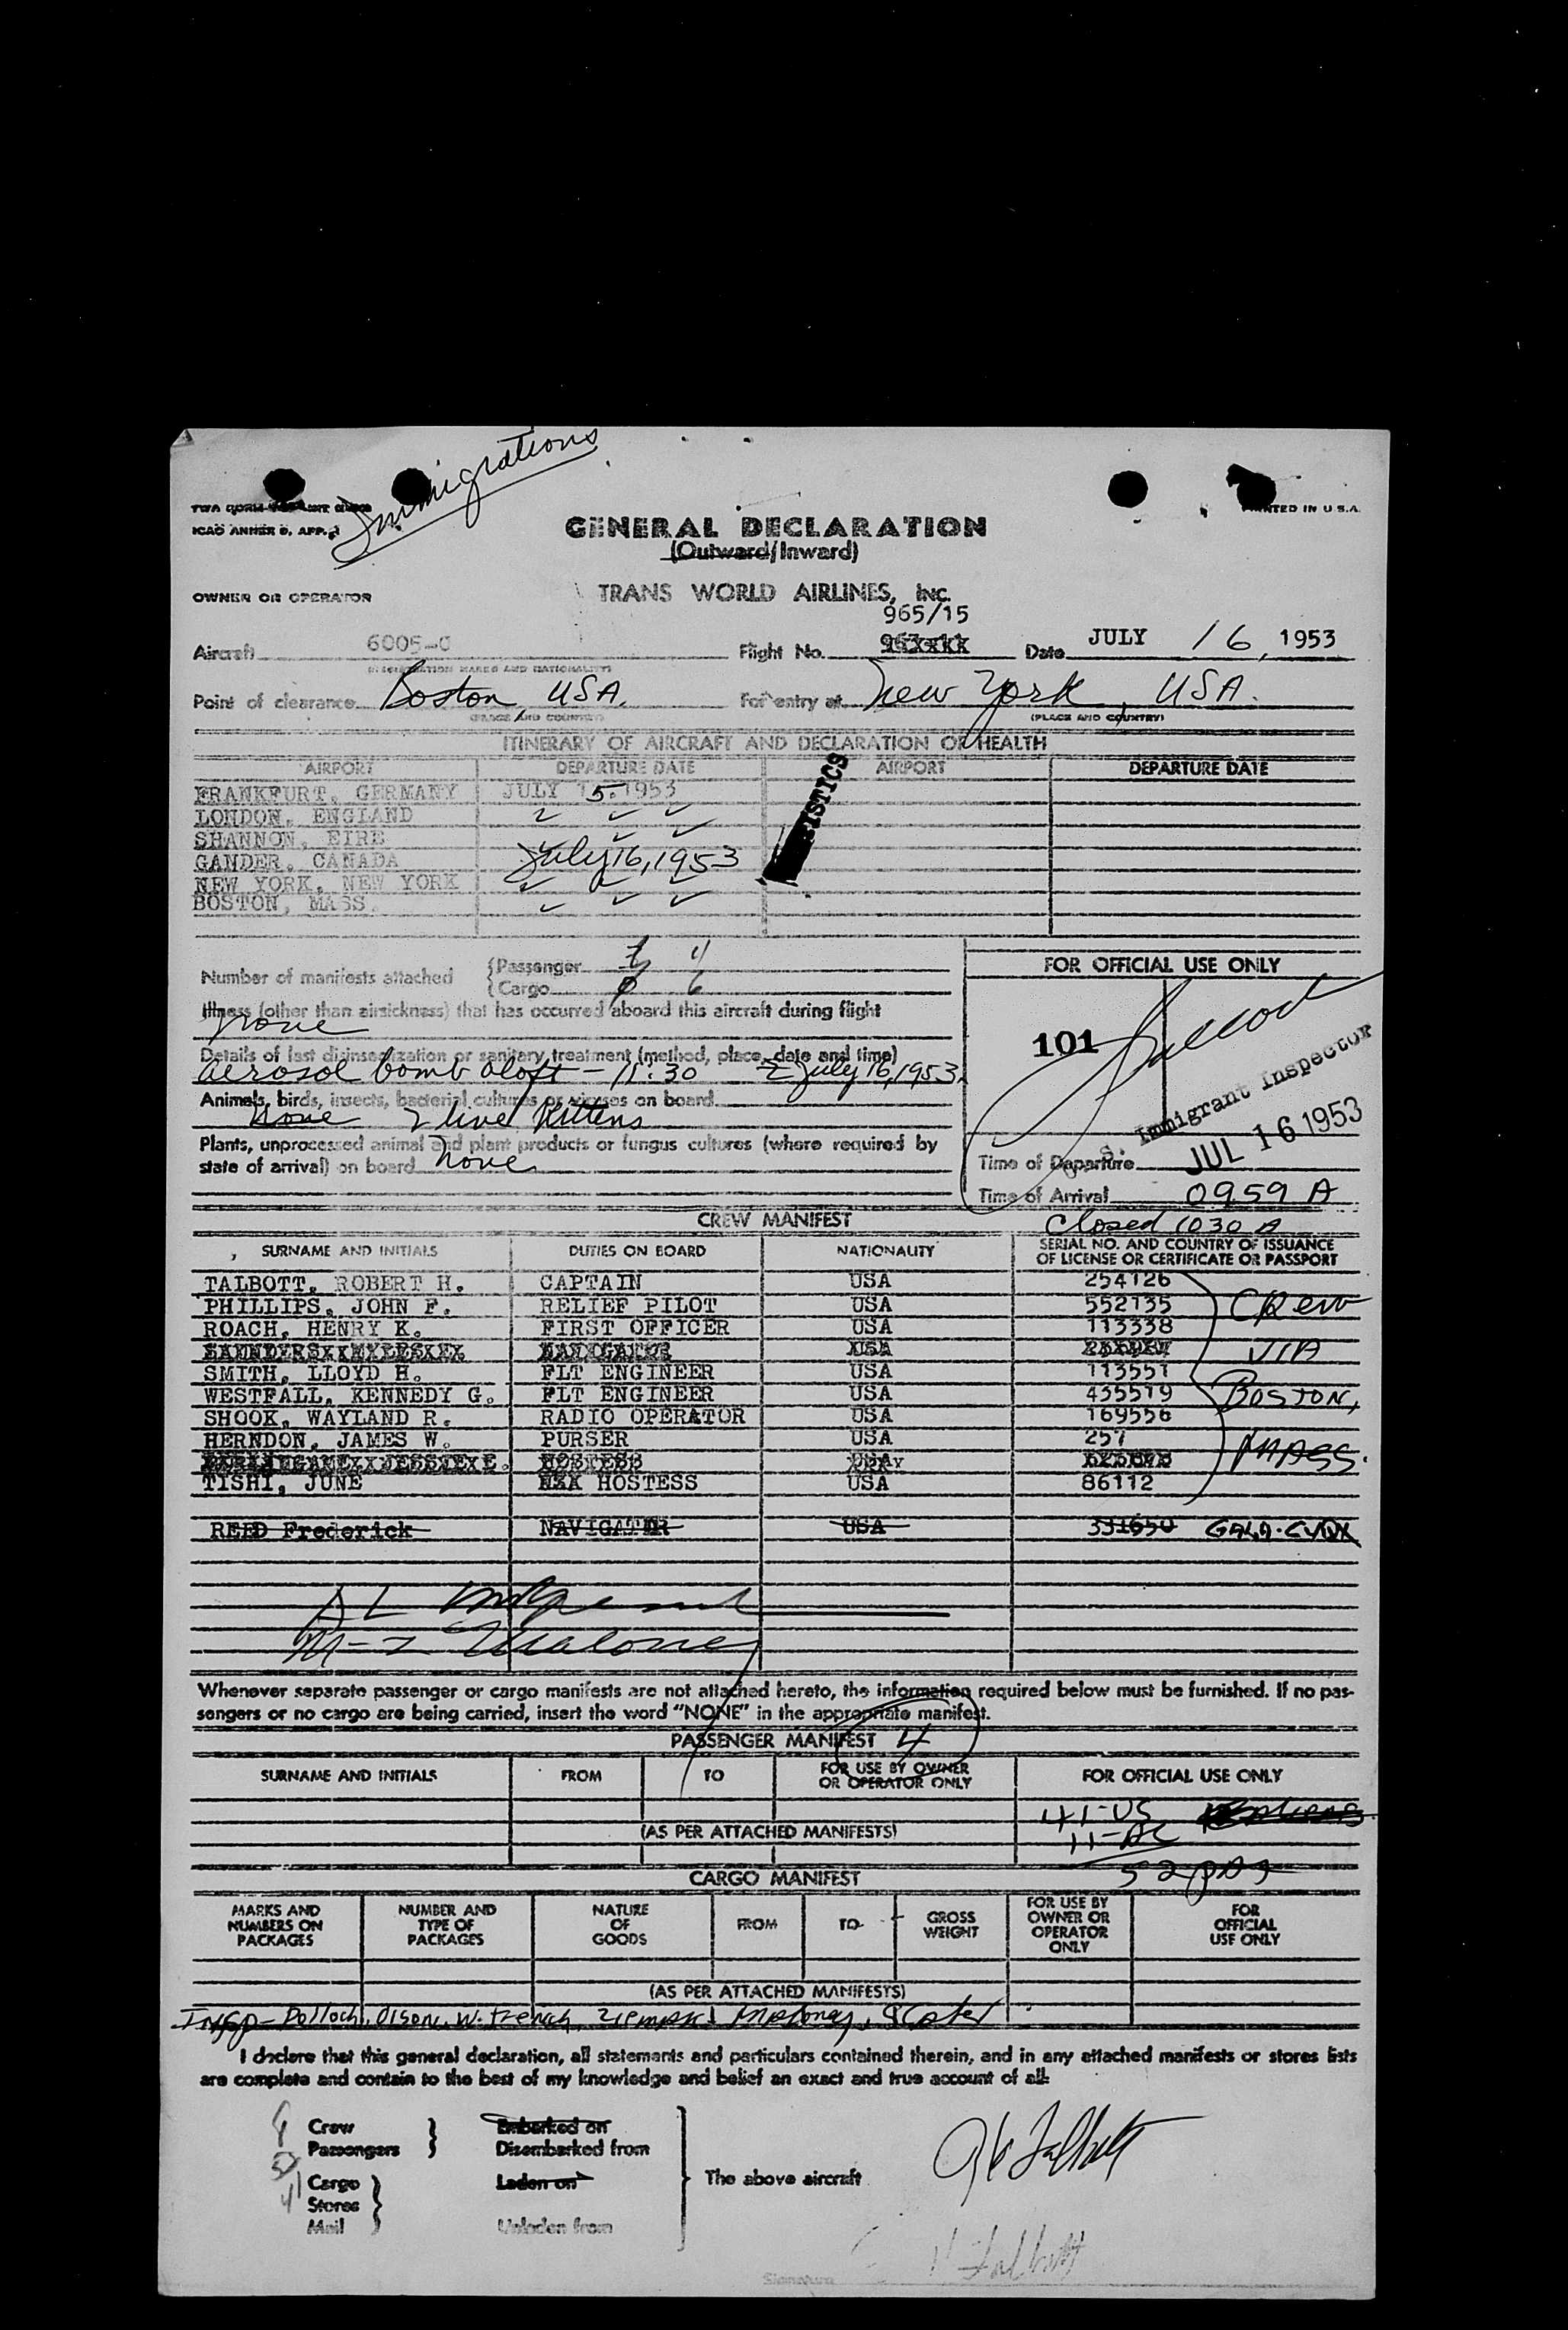 Immigrations
ICAO ANNEX 9, APP.
PRINTED IN U.S.A.
GENERAL DECLARATION
(Outward/Inward)
OWNER OR OPERATOR
TRANS WORLD AIRLINES, Inc.
965/15
Aircraft 6005-C Flight No. Date JULY 16, 1953
(REGISTRATION MARKS AND NATIONALITY)
Point of clearance Boston, USA. For entry at New York, USA.
(PLACE AND COUNTRY) (PLACE AND COUNTRY)
ITINERARY OF AIRCRAFT AND DECLARATION OF HEALTH
AIRPORT DEPARTURE DATE AIRPORT DEPARTURE DATE
FRANKFURT, GERMANY JULY 15, 1953
LONDON, ENGLAND
SHANNON, EIRE
GANDER, CANADA July 16, 1953
NEW YORK, NEW YORK
BOSTON, MASS.
Number of manifests attached
Passenger 4
Cargo 6
Illness (other than airsickness) that has occurred aboard this aircraft during flight
None
Details of last disinsectization or sanitary treatment (method, place, date and time)
aerosol bomb aloft - 11:30 Z July 16, 1953.
Animals, birds, insects, bacterial cultures or viruses on board
None 2 live Kittens
Plants, unprocessed animal and plant products or fungus cultures (where required by
state of arrival) on board None
FOR OFFICIAL USE ONLY
101
Immigrant Inspector
JUL 16 1953
Time of Departure
Time of Arrival 0959 A
Closed 1030 A
CREW MANIFEST
SURNAME AND INITIALS DUTIES ON BOARD NATIONALITY SERIAL NO. AND COUNTRY OF ISSUANCE
OF LICENSE OR CERTIFICATE OR PASSPORT
TALBOTT, ROBERT H. CAPTAIN USA 254126
PHILLIPS, JOHN F. RELIEF PILOT USA 552135 CREW
ROACH, HENRY K. FIRST OFFICER USA 113338
VIA
SMITH, LLOYD H. FLT ENGINEER USA 113551
WESTFALL, KENNEDY G. FLT ENGINEER USA 435519 BOSTON,
SHOOK, WAYLAND R. RADIO OPERATOR USA 169556
HERNDON, JAMES W. PURSER USA 257
MASS.
TISHI, JUNE HOSTESS USA 86112
REED Frederick NAVIGATOR USA 331650
Whenever separate passenger or cargo manifests are not attached hereto, the information required below must be furnished. If no pas-
sengers or no cargo are being carried, insert the word "NONE" in the appropriate manifest.
PASSENGER MANIFEST 4
SURNAME AND INITIALS FROM TO FOR USE BY OWNER
OR OPERATOR ONLY FOR OFFICIAL USE ONLY
41-US
(AS PER ATTACHED MANIFESTS) 11-AC
52 pas
CARGO MANIFEST
MARKS AND
NUMBERS ON
PACKAGES
NUMBER AND
TYPE OF
PACKAGES
NATURE
OF
GOODS
FROM
TO
GROSS
WEIGHT
FOR USE BY
OWNER OR
OPERATOR
ONLY
FOR
OFFICIAL
USE ONLY
(AS PER ATTACHED MANIFESTS)
Insp- Olson, W. French,
I declare that this general declaration, all statements and particulars contained therein, and in any attached manifests or stores lists
are complete and contain to the best of my knowledge and belief an exact and true account of all:
Crew
Passengers
Embarked on
Disembarked from
Cargo
Stores
Mail
Laden on
Unladen from
The above aircraft
Signature